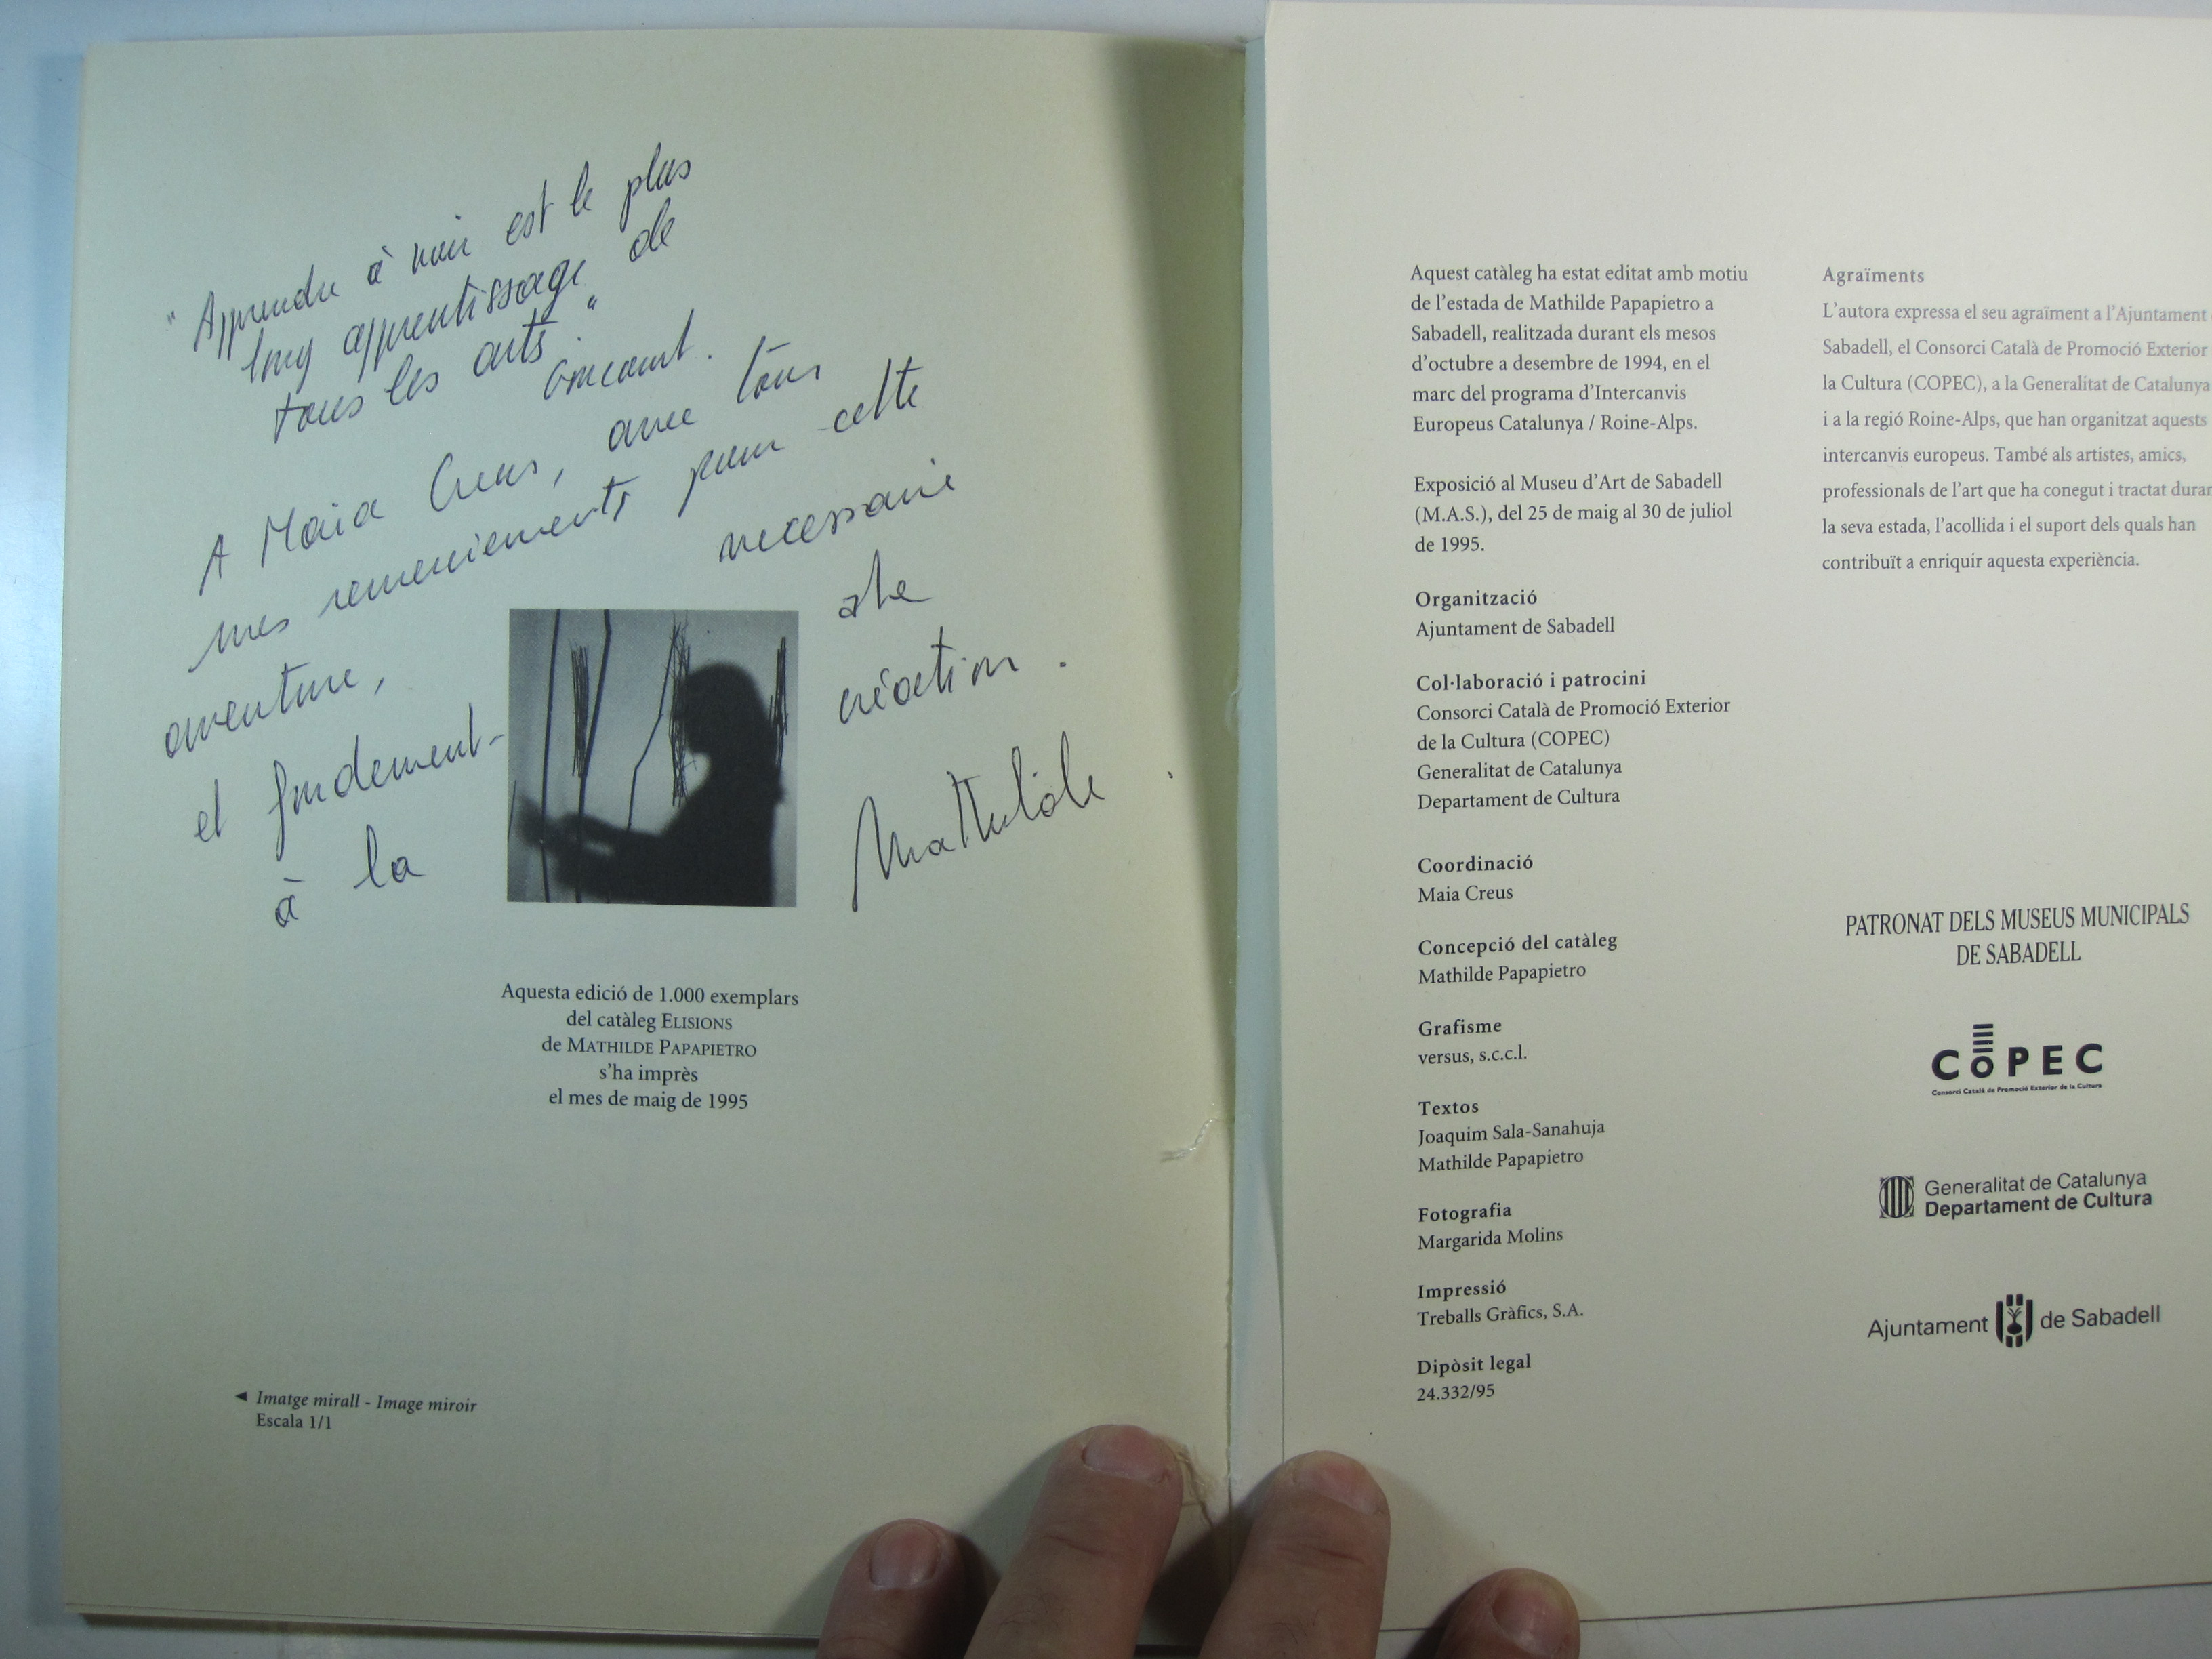 "Apprendre à voir est le plus
long apprentissage de
tous les arts."
Goncourt.
A Maia Creus, avec tous
mes remerciements pour cette
aventure, necessaire
et fondement-
à la création.
Mathilde
Aquesta edició de 1.000 exemplars
del catàleg ELISIONS
de MATHILDE PAPAPIETRO
s'ha imprès
el mes de maig de 1995
◄ Imatge mirall - Image miroir
Escala 1/1
Aquest catàleg ha estat editat amb motiu
de l'estada de Mathilde Papapietro a
Sabadell, realitzada durant els mesos
d'octubre a desembre de 1994, en el
marc del programa d'Intercanvis
Europeus Catalunya / Roine-Alps.
Exposició al Museu d'Art de Sabadell
(M.A.S.), del 25 de maig al 30 de juliol
de 1995.
Organització
Ajuntament de Sabadell
Col·laboració i patrocini
Consorci Català de Promoció Exterior
de la Cultura (COPEC)
Generalitat de Catalunya
Departament de Cultura
Coordinació
Maia Creus
Concepció del catàleg
Mathilde Papapietro
Grafisme
versus, s.c.c.l.
Textos
Joaquim Sala-Sanahuja
Mathilde Papapietro
Fotografia
Margarida Molins
Impressió
Treballs Gràfics, S.A.
Dipòsit legal
24.332/95
Agraïments
L'autora expressa el seu agraïment a l'Ajuntament
Sabadell, el Consorci Català de Promoció Exterior
la Cultura (COPEC), a la Generalitat de Catalunya
i a la regió Roine-Alps, que han organitzat aquests
intercanvis europeus. També als artistes, amics,
professionals de l'art que ha conegut i tractat duran
la seva estada, l'acollida i el suport dels quals han
contribuït a enriquir aquesta experiència.
PATRONAT DELS MUSEUS MUNICIPALS
DE SABADELL
COPEC
Consorci Català de Promoció Exterior de la Cultura
Generalitat de Catalunya
Departament de Cultura
Ajuntament de Sabadell